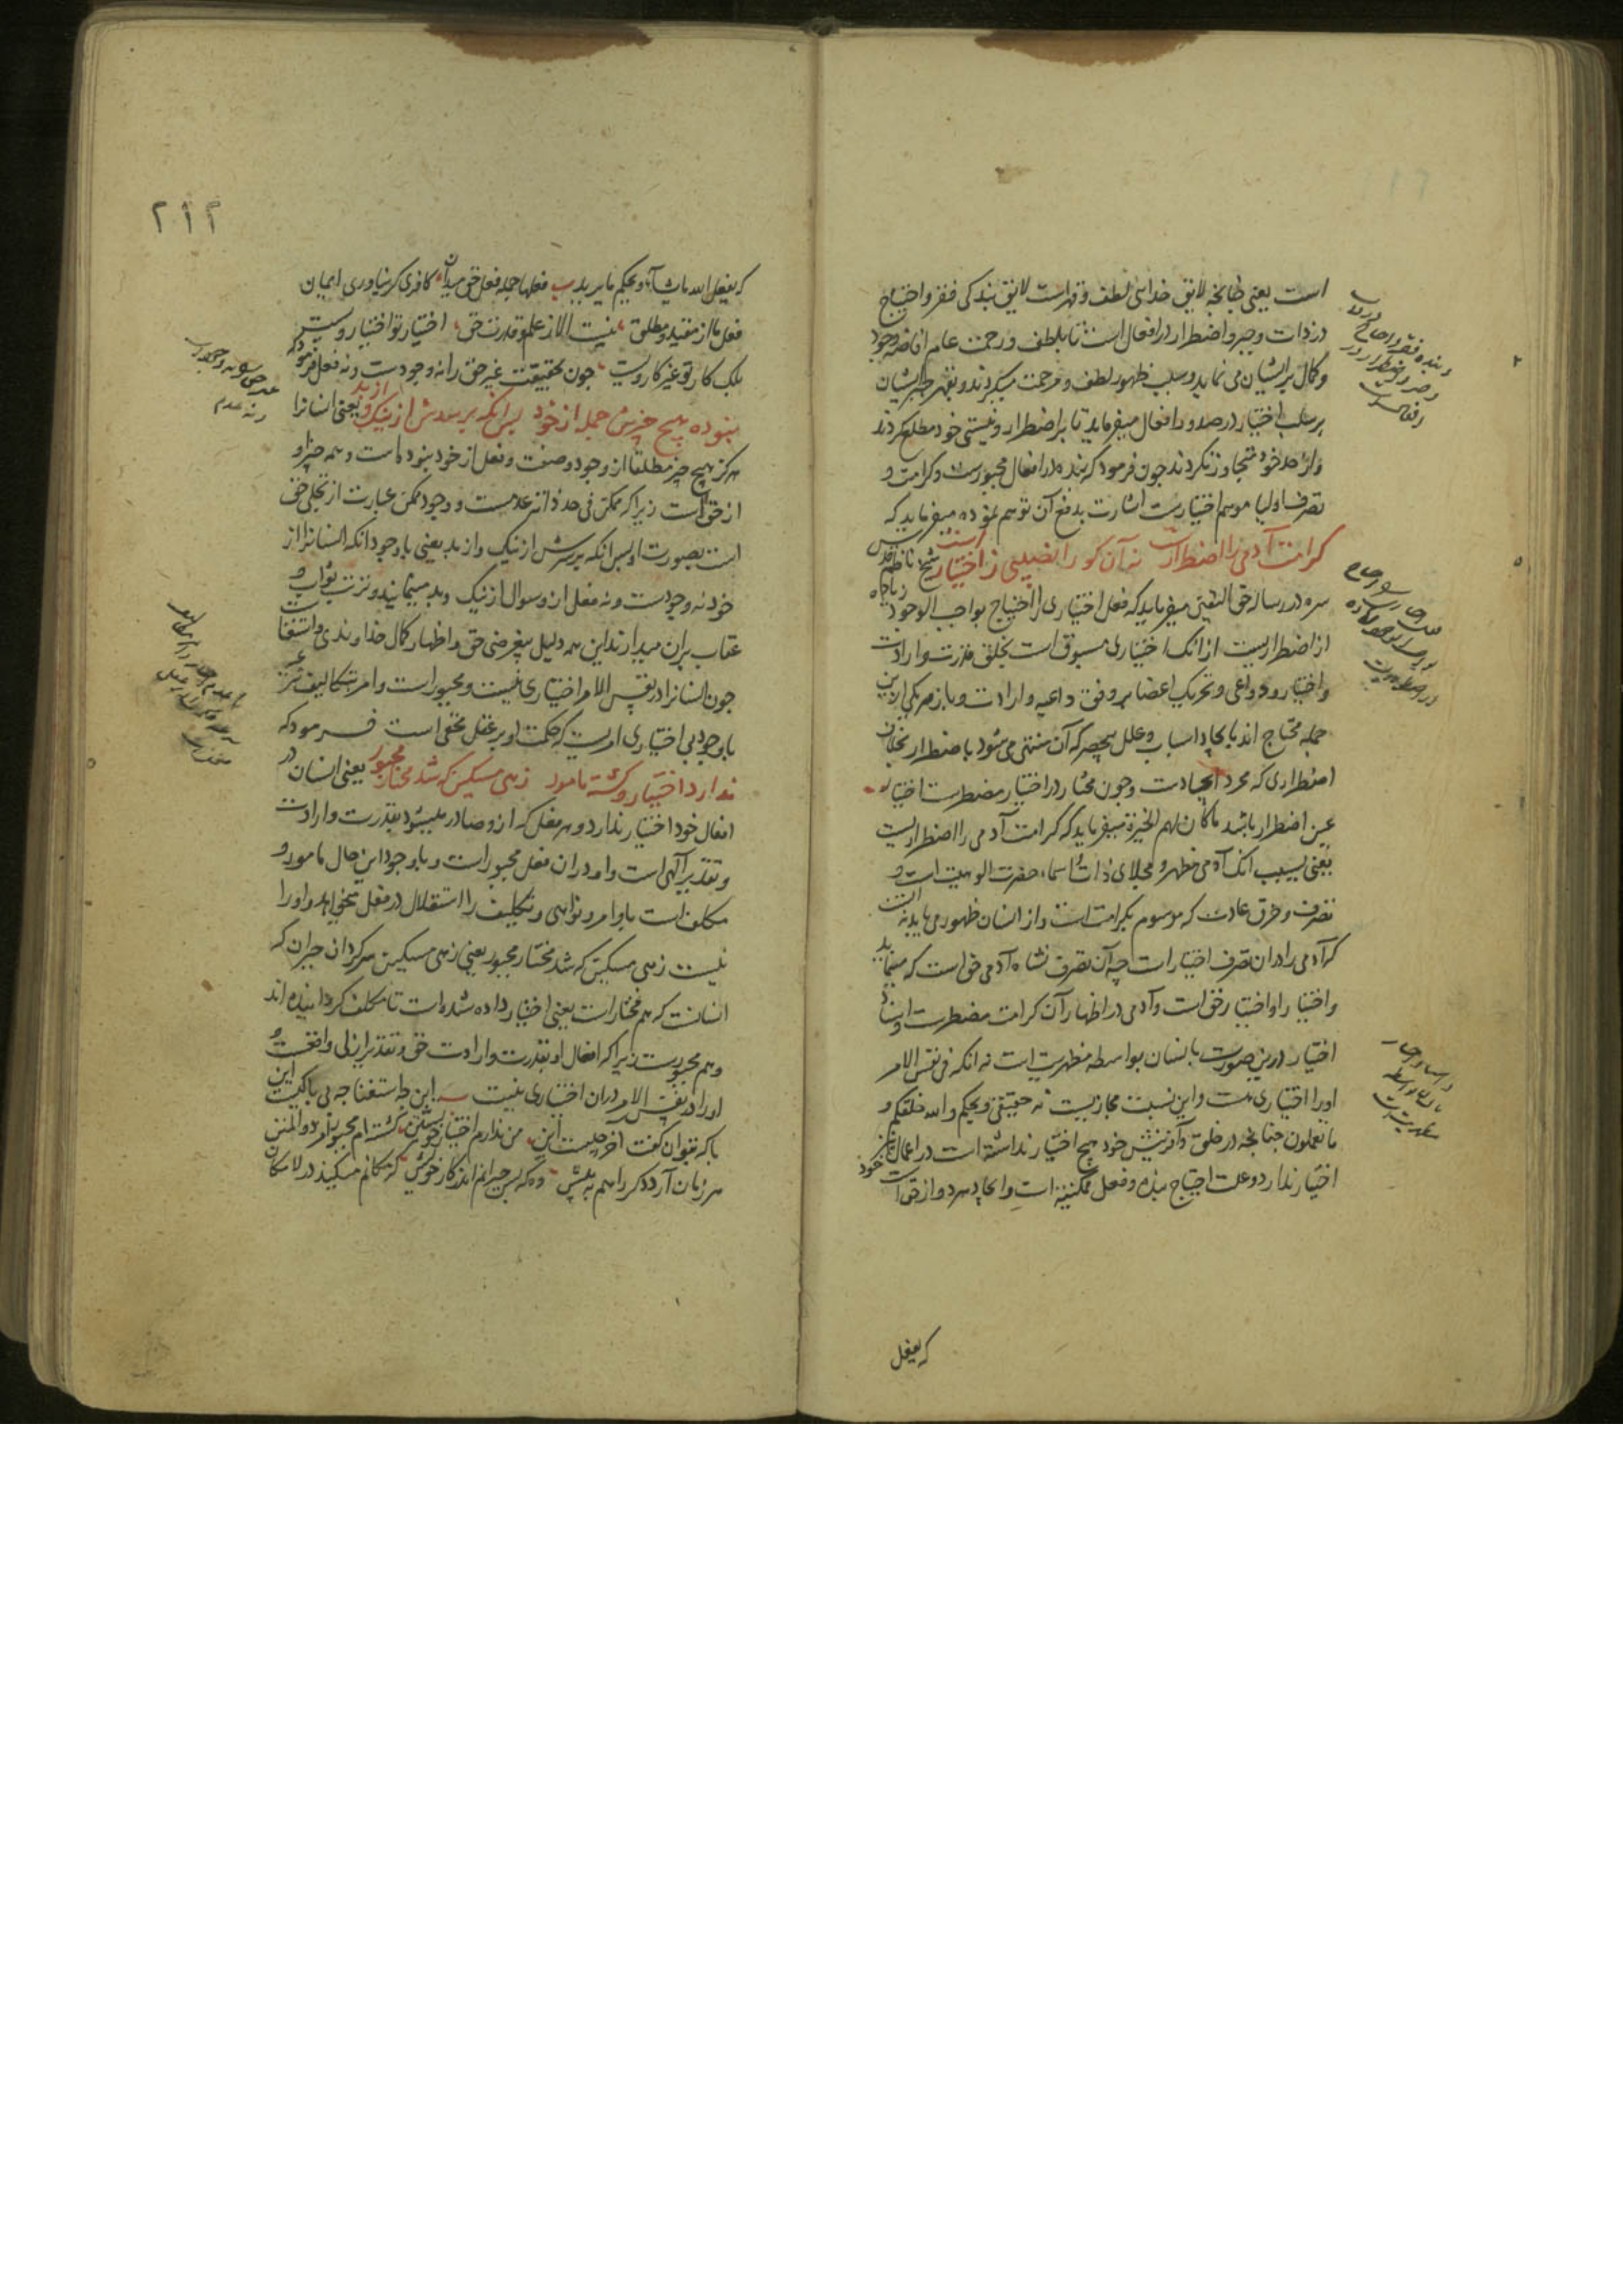 است یعنی چنانچه لایق خدائی لطف و قهر است لایق بندکی فقر و احتیاج
در ذات و جبر و اضطرار در افعال است تا بلطف و رحمت عام افاضه وجود
و کمال بر ایشان می نماید و سبب ظهور لطف و مرحمت میکردند و بقهر جبر ایشان
بر سلب اختیار در صدور افعال میفرماید تا بر اضطرار و نیستی خود مطلع کردند
و از حد خود متجاوز نکردند جون فرمود که بنده در افعال مجبورست و کرامت و
تصرف اولیا موهم اختیارست اشارت بدفع آن توهم نموده میفرماید که
کرامت آدمی را اضطرارست نه آن کو را نصیبی ز اختیارست شیخ ناظم قدس
سره در رساله حق الیقین میفرماید که فعل اختیاری را احتیاج بواجب الوجود زیاده
از اضطراریست از آنک اختیاری مسبوق است بخلق قدرت و ارادت
و اختیار و دواعی و تحریک اعضا بر وفق داعیه و ارادت و باز هر یکی ازین
جمله محتاج اند بایجاد اسباب و علل بیحصر که آن منتهی می شود باضطرار بخلاف
اضطراری که مجرد ایجادست و جون مختار در اختیار مضطرست اختیار او
عین اضطرار باشد ما کان لهم الخیرة میفرماید که کرامت آدمی را اضطراریست
یعنی بسبب انک آدمی مظهر و مجلای ذات و اسماء حضرت الوهیت است و
تصرف و خرق عادت که موسوم بکرامت است و از انسان ظهور می یابد نه آنست
که آدمی را در ان تصرف اختیار است چه آن تصرف نشاه آدمی حق است که مینماید
و اختیار او اختیار حق است و آدمی در اظهار آن کرامت مضطرست و اسناد
اختیار درین صورت بانسان بواسطه مظهریت است نه انکه فی نفس الامر
او را اختیاری هست و این نسبت مجازیست نه حقیقی و بحکم والله خلقکم و
ما تعملون جنانچه در خلق و آفرینش خود هیچ اختیار نداشته است در اعمال نیز
اختیار ندارد و علت احتیاج بنده و فعل ممکنیته است و ایجاد هر دو از حق است خود
که یفعل
۲۱۲
که یفعل الله ما یشاء و یحکم ما یرید فعلها جمله فعل حق میدان کافری کر نیاوری ایمان
فعل ما از مقید و مطلق نیست الا ز علم و قدرت حق اختیار تو اختیار ویست
بلک کار تو غیر کار ویست جون بحقیقت غیر حق را نه وجودست و نه فعل فرمود که
نبوده هیچ چیزش جمله از خود پس انکه پرسدش از نیک و از بد یعنی انسانرا
هرکز هیچ چیز مطلقا از وجود و صفت و فعل از خود نبوده است و همه چیز او
از حق است زیرا که ممکن فی حد ذاته عدمست و وجود ممکن عبارت از تجلی حق
است بصورت او پس انکه پرسش از نیک و از بد یعنی با وجود انکه انسانرا از
خود نه وجودست و نه فعل از و سوال از نیک و بد مینمایند و ترتب ثواب و
عقاب بران میدارند این همه دلیل بیغرضی حق و اظهار کمال خداوندی و استغناست
جون انسانرا در نفس الامر اختیاری نیست و مجبور است و امر بتکالیف شرعیه
با وجود بی اختیاری امریست که حکمت او بر عقل مخفی است فرمود که
ندارد اختیار و کشته مامور زهی مسکین که شد مختار مجبور یعنی انسان در
افعال خود اختیار ندارد و هر فعل که ازو صادر میشود بقدرت و ارادت
و تقدیر الهی است و او در ان فعل مجبور است و با وجود این حال مامور و
مکلف است باوامر و نواهی و تکلیف را استقلال در فعل میخواهد و او را
نیست زهی مسکین که شد مختار مجبور یعنی زهی مسکین سرکردان حیران که
انسانست که هم مختار است یعنی اختیار داده شده است تا مکلف کردانیده اند
و هم مجبورست زیرا که افعال او بقدرت و ارادت حق و تقدیر ازلی واقعست و
او را در نفس الامر دران اختیاری نیست این چه استغنا چه بی باکیست این
با که بتوان کفت آخر چیست این من ندارم اختیار خویشتن کشته ام مجبور امر ذو المنن
هر زبان آرد دکر راهم به پیش وه که بس حیرانم اندر کار خویش که مکانم میکند در لامکان